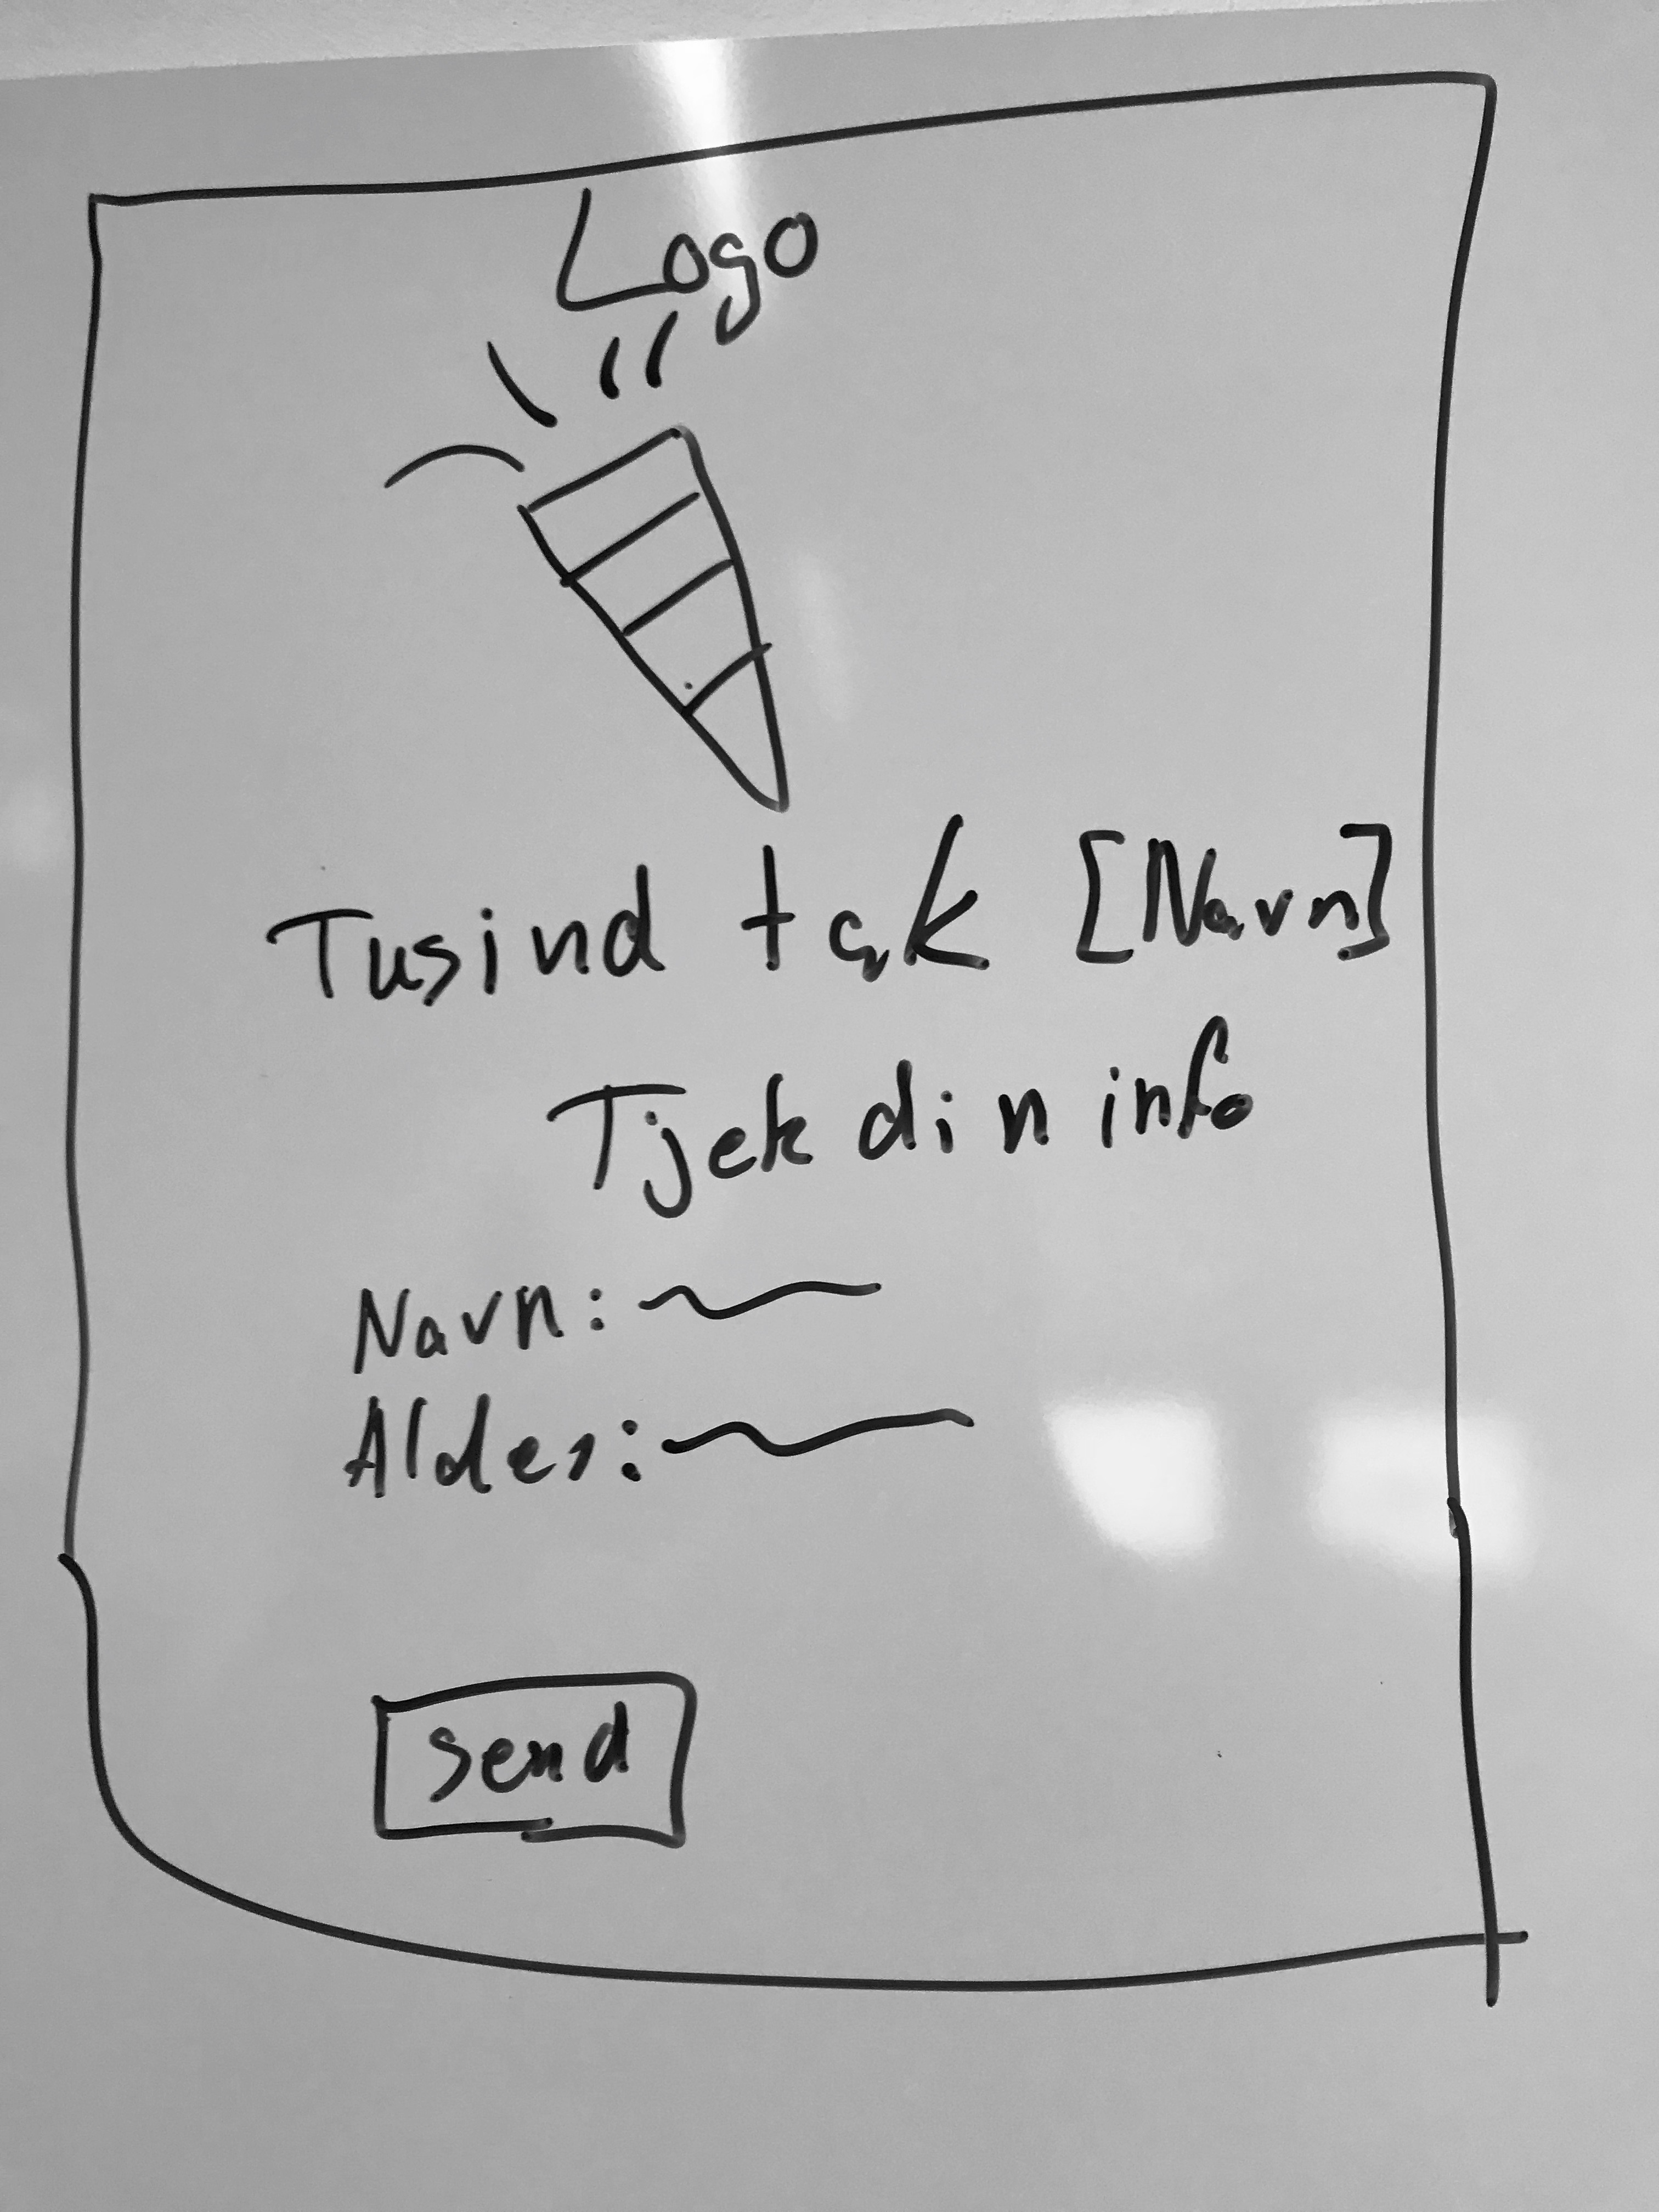 Logo
Tusind tak [Navn]
Tjek din info
Navn:
Alder:
Send